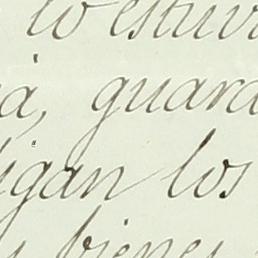 lo estuvi
a, guard
igan los
bienes